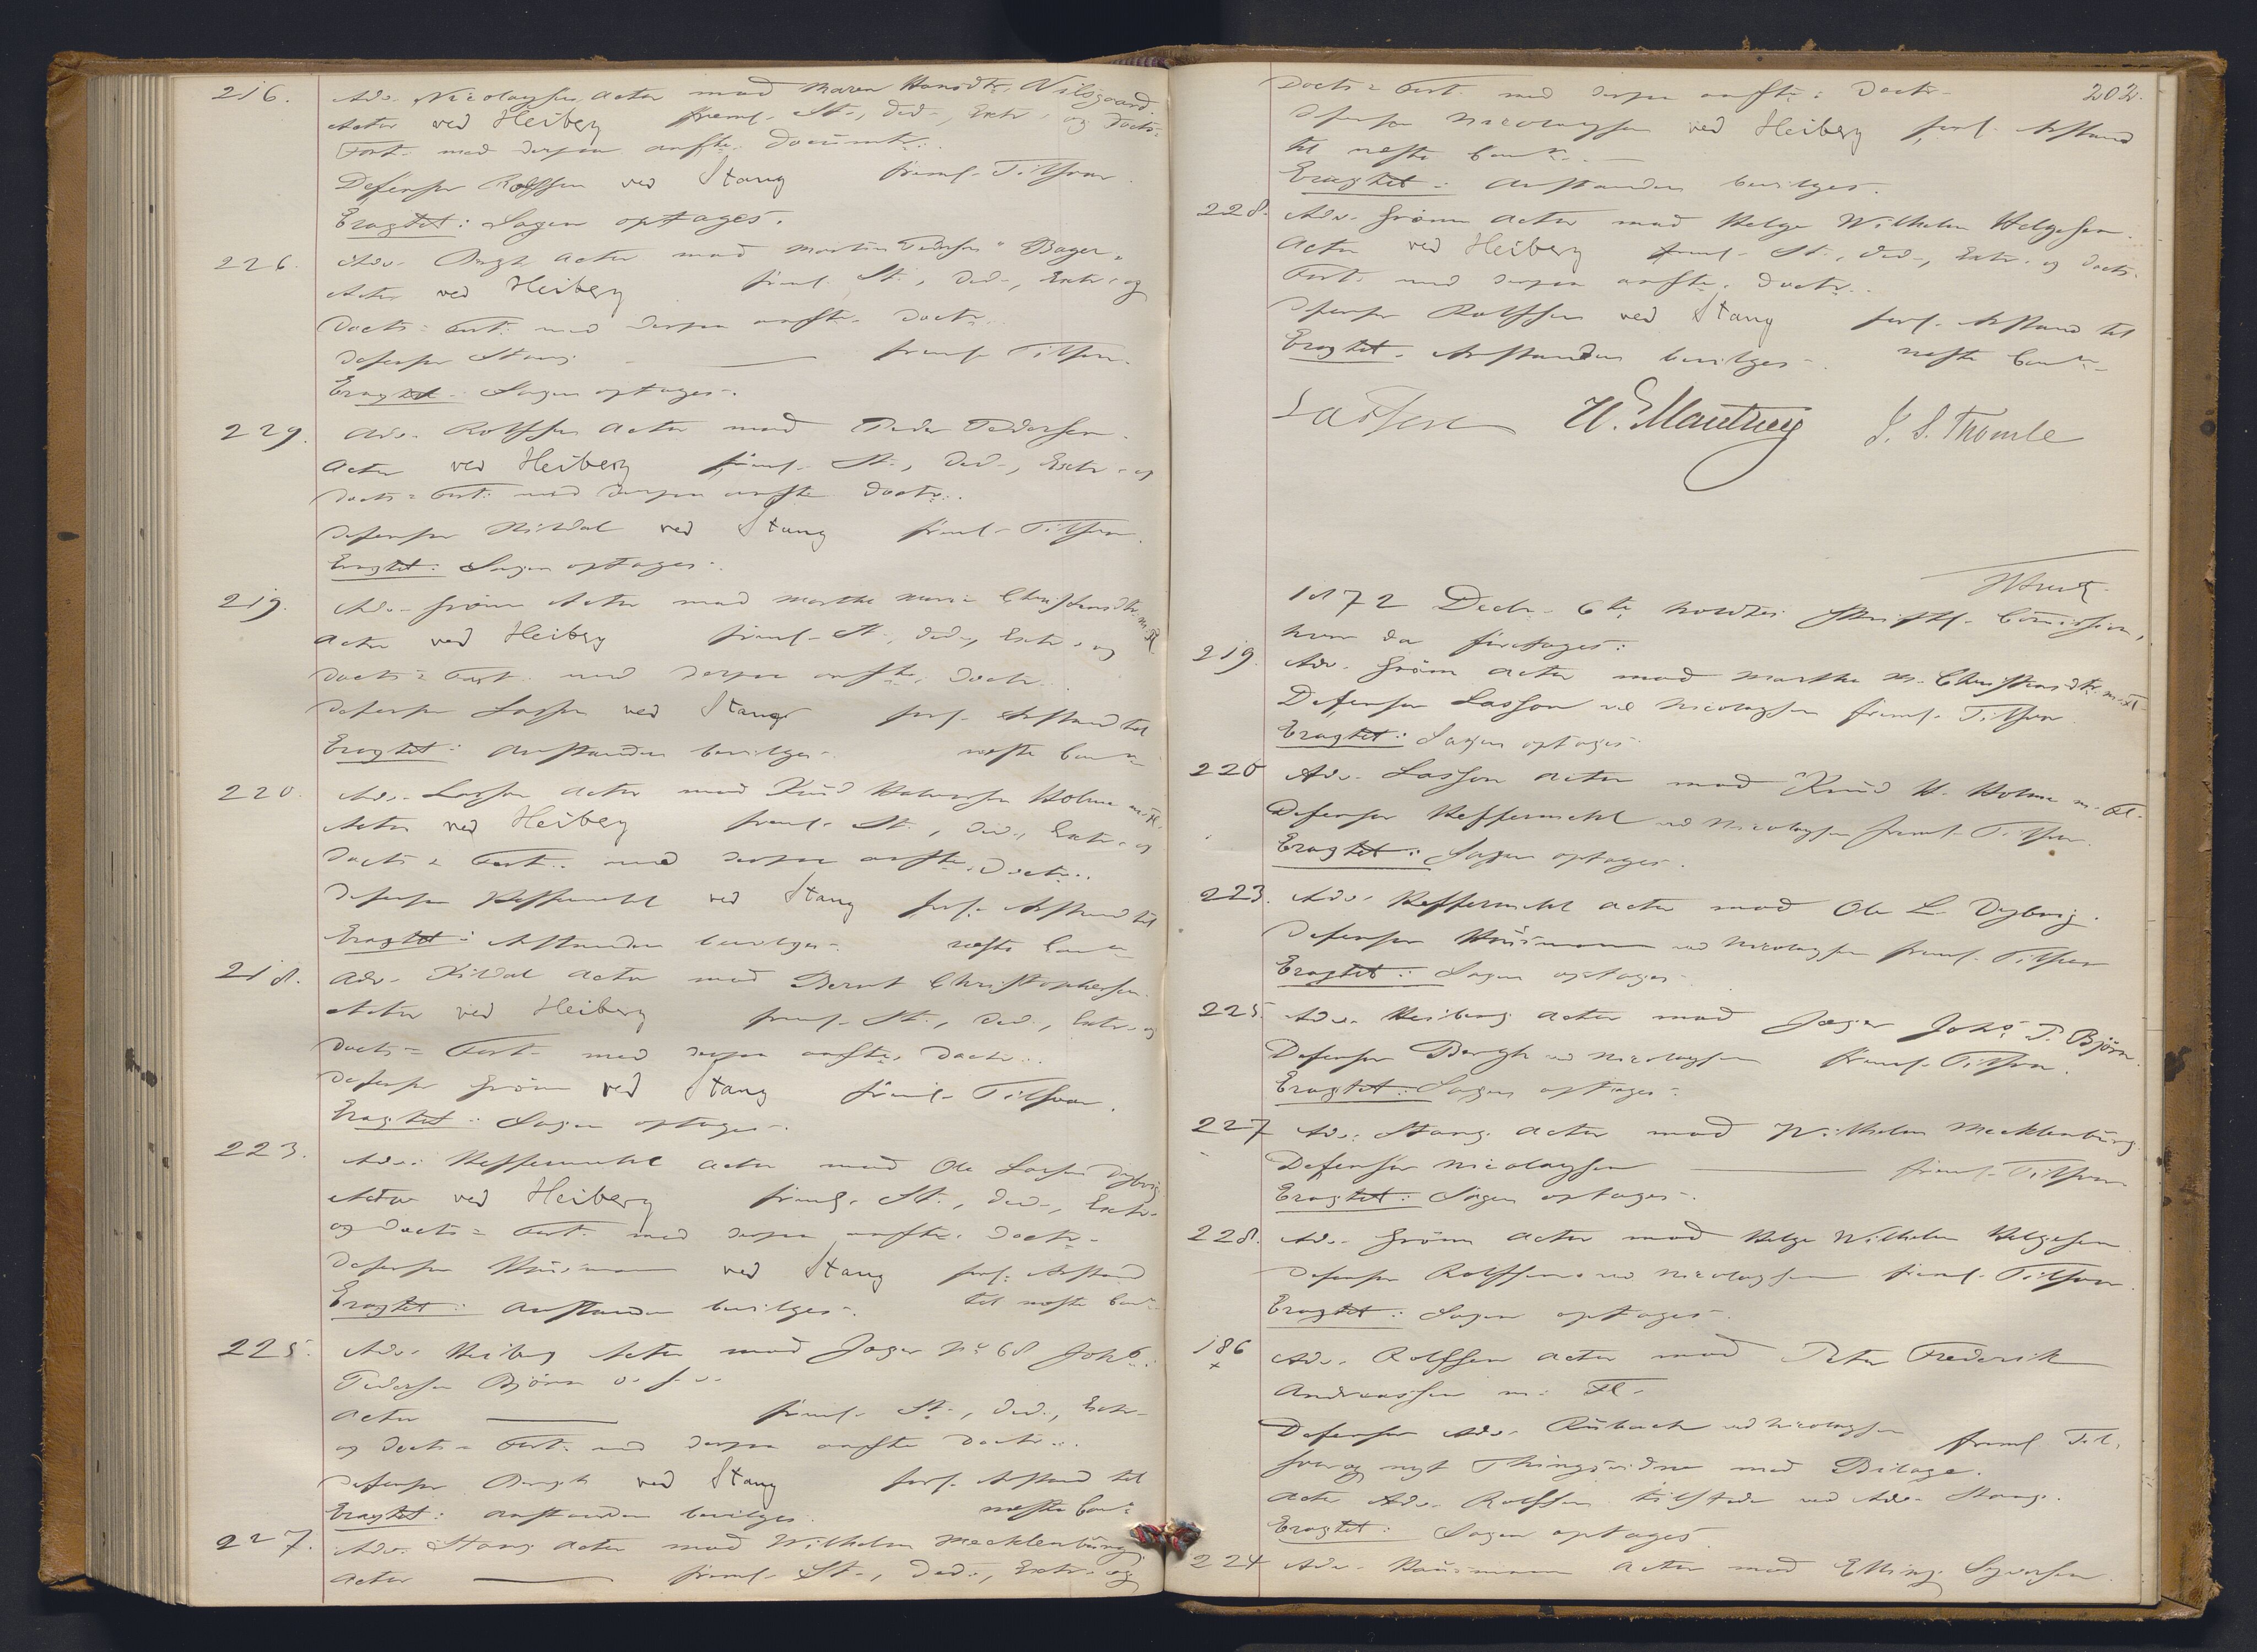 216. Adv. Nicolaysen Actor mod Maren Hansdtr. Nilsgaard
Actor ved Heiberg freml. St., Ded., Extr. og Docts-
Fort. med derpaa anfte. Documtr.
Defensor Rolfsen ved Stang freml. Tilsvar.
Eragtet: Sagen optages.
226. Adv. Bergh Actor mod Martin Pedersen "Bager"
Actor ved Heiberg freml. St., Ded., Extr. og
Docts = Fort. med derpaa anfte. Doctr.
Defensor Stang — freml. Tilsvar.
Eragtet: Sagen optages.
229. Adv. Rolfsen Actor mod Peder Pedersen.
Actor ved Heiberg freml. St., Ded., Extr. og
Docts = Fort. med derpaa anfte Doctr.
Defensor Kildal ved Stang freml. Tilsvar.
Eragtet: Sagen optages.
219. Adv. Grönn Actor mod Marthe Marie Christensdtr. m. Fl.
Actor ved Heiberg freml. St., Ded., Extr. og
Docts = Fort. med derpaa anfte. Doctr.
Defensor Lasson ved Stang forl. Anstand til
Eragtet: Anstanden bevilges. næste Com:
220. Adv. Lasson Actor mod Knud Holme m. Fl.
Actor ved Heiberg freml. St., Ded., Extr. og
Docts = Fort. med derpaa anfte. Doctr.
Defensor Heffermehl ved Stang forl. Anstand til
Eragtet: Anstanden bevilges. næste Com:
218. Adv. Kildal Actor mod Bernt Christophersen.
Actor ved Heiberg freml. St., Ded., Extr. og
Docts = Fort. med derpaa anfte. Doctr.
Defensor Grönn ved Stang freml. Tilsvar.
Eragtet: Sagen optages.
223. Adv. Heffermehl Actor mod Ole Larsen Dybvig
Actor ved Heiberg freml. St., Ded., Extr.
og Docts = Fort. med derpaa anfte. Doctr.
Defensor Homann ved Stang forl. Anstand
Eragtet: Anstanden bevilges. til næste Com:
225. Adv. Heiberg Actor mod Jæger No 68 Johs.
Pedersen Björn
Actor — freml. St., Ded., Extr.
og Docts = Fort. med derpaa anfte Doctr.
Defensor Bergh ved Stang forl. Anstand til
Eragtet: Anstanden bevilges. næste Com:
227. Adv. Stang Actor mod Wilhelm Mecklenburg.
Actor — freml. St., Ded., Extr. og
202.
Docts = Fort. med derpaa anfte. Doctr.
Defensor Nicolaysen ved Heiberg forl. Anstand
til næste Com:
Eragtet: Anstanden bevilges.
228. Adv. Grönn Actor mod Helge Wilhelm Helgesen.
Actor ved Heiberg freml. St., Ded., Extr. og Docts-
Fort. med derpaa anfte. Doctr.
Defensor Rolfsen ved Stang forl. Anstand til
Eragtet. Anstanden bevilges. næste Com:
Lasson
J. S. Thomle
1872 Decbr. 6te holdtes Skriftl. Comission,
hvor da foretages:
219. Adv. Grönn Actor mod Marthe M. Christensdtr. m. Fl.
Defensor Lasson ved Nicolaysen freml. Tilsvar.
Eragtet: Sagen optages.
220 Adv. Lasson Actor mod Knud H. Holme m. Fl.
Defensor Heffermehl ved Nicolaysen freml. Tilsvar.
Eragtet: Sagen optages.
223. Adv. Heffermehl Actor mod Ole L. Dybvig.
Defensor Homann ved Nicolaysen freml. Tilsvar
Eragtet: Sagen optages.
225. Adv. Heiberg Actor mod Jæger Johs. P. Björn.
Defensor Bergh ved Nicolaysen freml. Tilsvar.
Eragtet: Sagen optages.
227 Adv. Stang Actor mod Wilhelm Mecklenburg
Defensor Nicolaysen — freml. Tilsvar
Eragtet: Sagen optages.
228. Adv. Grönn Actor mod Helge Wilhelm Helgesen
Defensor Rolfsen ved Nicolaysen freml. Tilsvar.
Eragtet: Sagen optages.
186 Adv. Rolfsen Actor mod Peter Frederik
x Andreassen m. Fl.
Defensor Adv. Rubach ved Nicolaysen freml Til-
svar og nyt Thingsvidne med Bilage.
Actor Adv. Rolfsen tilstede ved Adv. Stang.
Eragtet: Sagen optages
224 Adv. Homann Actor mod Elling Syversen.